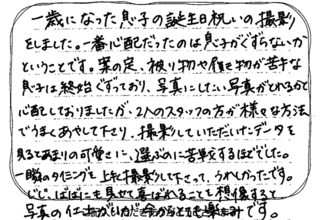 一歳になった息子の誕生日祝いの撮影
をしました。一番心配だったのは息子がぐずらないか
ということです。案の定、被り物や付け物が苦手な
息子は終始ぐずっており、写真にしたい写真がとれるかと
心配しておりましたが、2人のスタッフの方が様々な方法
でうまくあやして下さり、撮影していただいたデータを
見るとあまりの可愛さに、選ぶのに苦労するほどでした。
一瞬のタイミングを上手に撮影して下さって、うれしかったです。
じじ、ばばにも見せて喜ばれることを想像すると
写真の仕上がりが今からとても楽しみです。